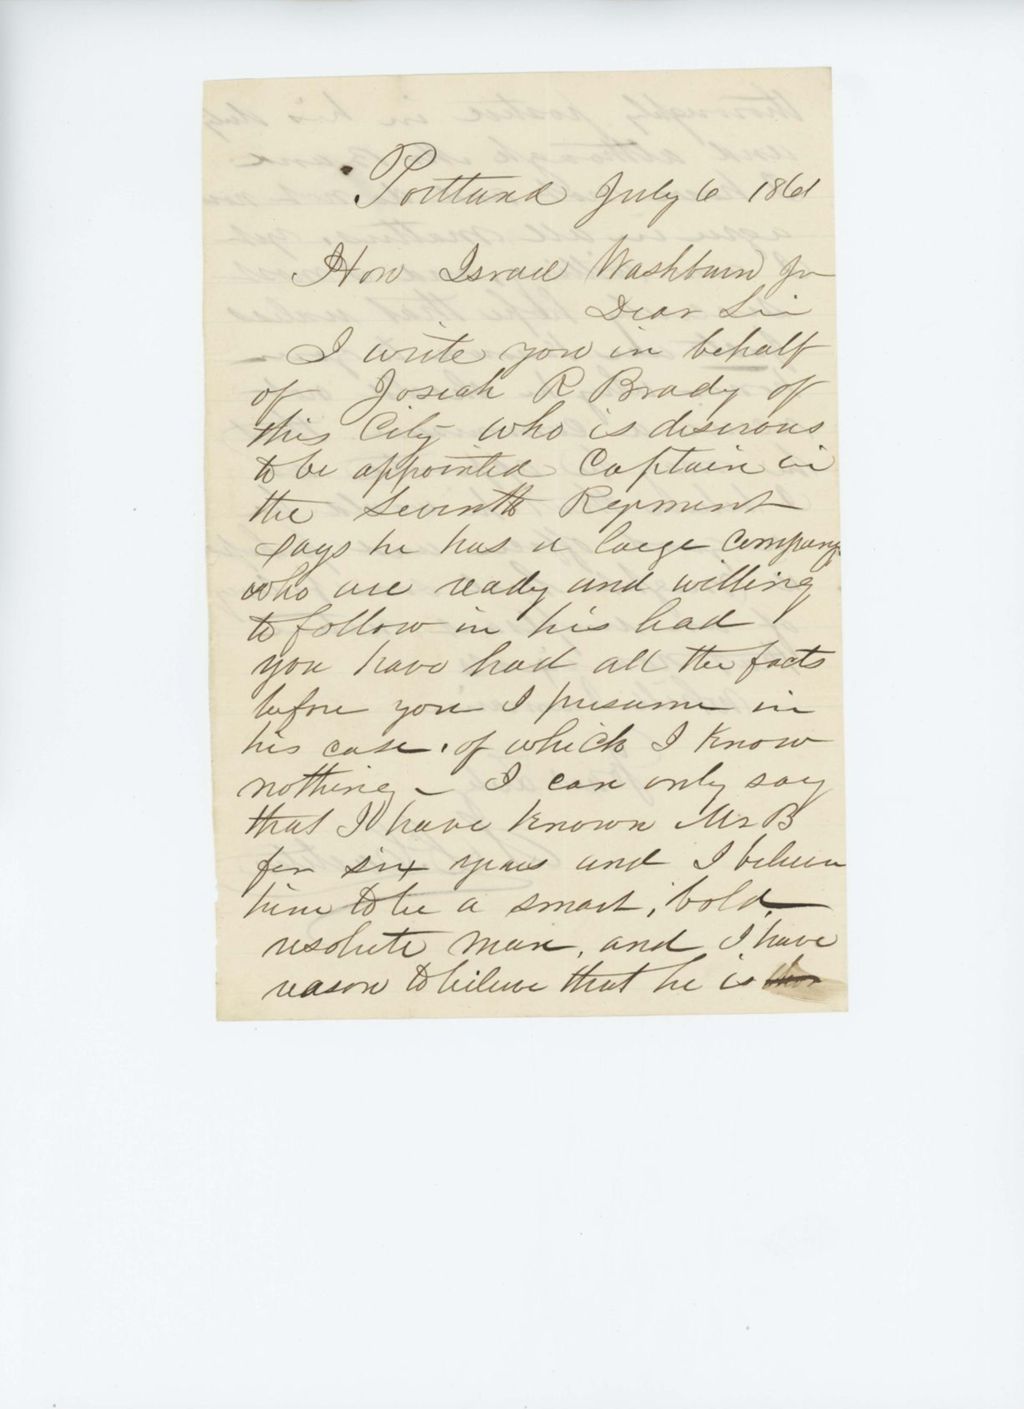 Portland July 6 1861
Hon Israel Washburn Jr
Dear Sir
I write you in behalf
of Josiah R Brady of
this City who is desirous
to be appointed Captain in
the Seventh Regiment
says he has a large Company
who are ready and willing
to follow in his lead
you have had all the facts
before you I presume in
his case, of which I know
nothing - I can only say
that I have known Mr B
for six years and I believe
him to be a smart, bold,
resolute man, and I have
reason to believe that he is